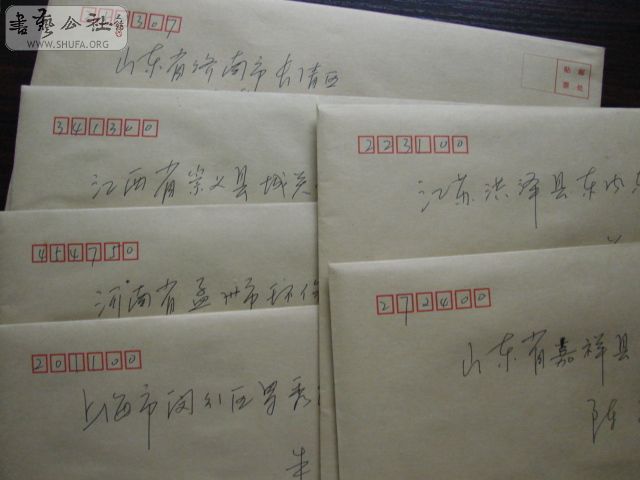 書藝公社
WWW.SHUFA.ORG
307
山东省济南市长清区
贴邮
票处
341300
江西省崇义县城关
223100
江苏洪泽县东
454750
河南省孟州市环保
272400
山东省嘉祥县
陈
201100
上海市闵行区莘
朱